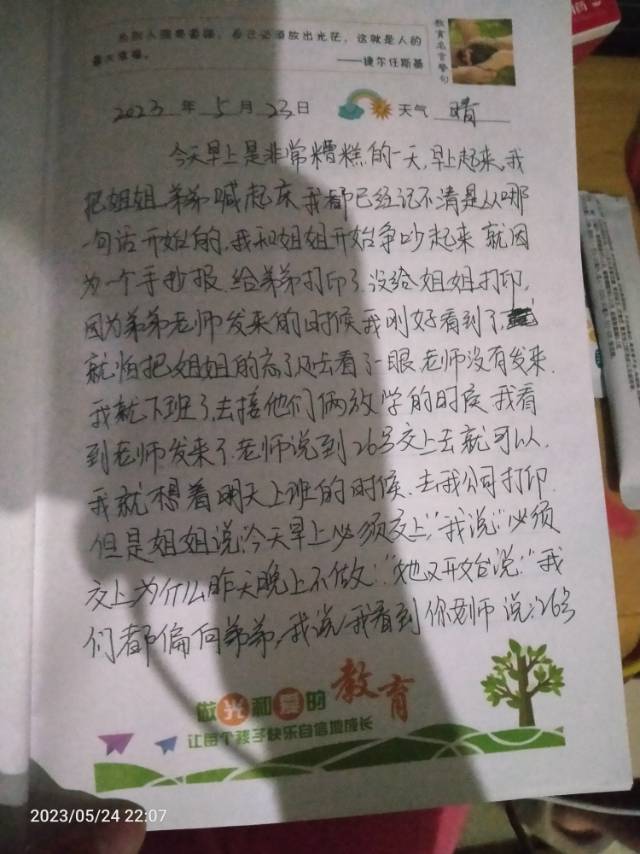 为别人照亮道路，自己必须放出光芒，这就是人的
最大幸福。
——捷尔任斯基
教育名言警句
2023 年 5 月 23 日 天气 晴
今天早上是非常糟糕的一天,早上起来,我
把姐姐弟弟喊起床,我都已经记不清是从哪
一句话开始的,我和姐姐开始争吵起来 就因
为一个手抄报,给弟弟打印了,没给姐姐打印,
因为弟弟老师发来的时候我刚好看到了,
就怕把姐姐的忘了又去看了一眼,老师没有发来,
我就下班了,去接他们俩放学的时候,我看
到老师发来了,老师说到26号交上去就可以,
我就想着明天上班的时候,去我公司打印,
但是姐姐说:"今天早上必须交上","我说:"必须
交上为什么昨天晚上不做","她又开始说:"我
们都偏向弟弟,我说,我看到你老师说:26号
做光和爱的教育
让每个孩子快乐自信地成长
2023/05/24 22:07